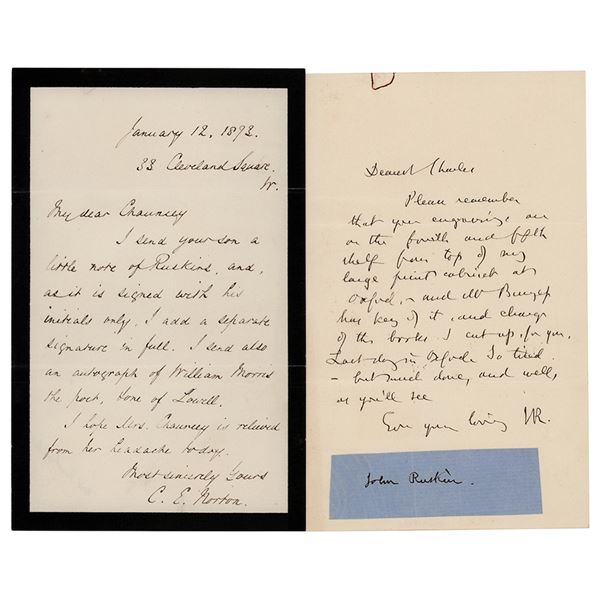 January 12, 1873.
33 Cleveland Square.
W.
My dear Chauncey
I send your son a
little note of Ruskins, and,
as it is signed with his
initials only, I add a separate
signature in full. I send also
an autograph of William Morris
the poet, & one of Lowell.
I hope Mrs. Chauncey is relieved
from her headache today.
Most sincerely Yours
C. E. Norton.
Dearest Charles
Please remember
that your engravings are
on the fourth and fifth
shelf from top of my
large print cabinet at
Oxford, - and Mr Burgess
has key of it, and charge
of the books I cut up, for you.
Last day in Oxford. So tired
- but much done, and well,
as you'll see
Ever your loving JR.
John Ruskin.